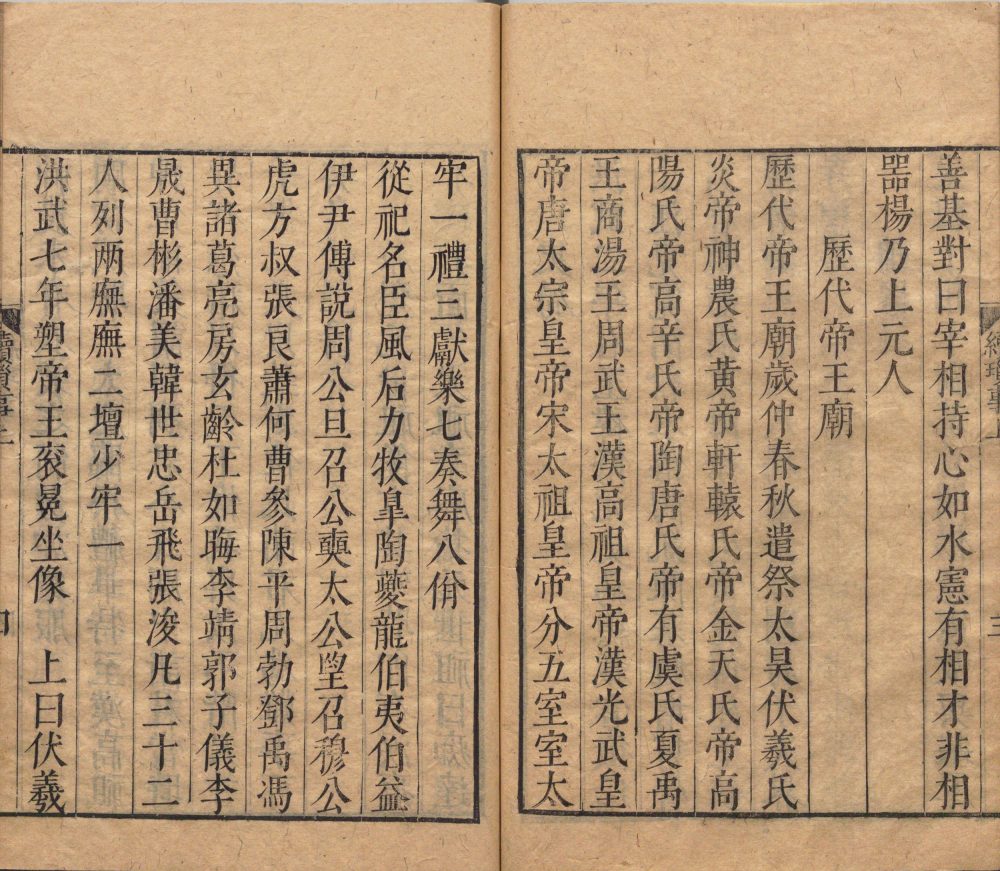 善基對曰宰相持心如水憲有相才非相
器楊乃上元人
歷代帝王廟
歷代帝王廟歲仲春秋遣祭太昊伏羲氏
炎帝神農氏黃帝軒轅氏帝金天氏帝高
陽氏帝高辛氏帝陶唐氏帝有虞氏夏禹
王商湯王周武王漢高祖皇帝漢光武皇
帝唐太宗皇帝宋太祖皇帝分五室室太
牢一禮三獻樂七奏舞八佾
從祀名臣風后力牧皐陶夔龍伯夷伯益
伊尹傅說周公旦召公奭太公望召穆公
虎方叔張良蕭何曹參陳平周勃鄧禹馮
異諸葛亮房玄齡杜如晦李靖郭子儀李
晟曹彬潘美韓世忠岳飛張浚凡三十二
人列兩廡廡二壇少牢一
洪武七年塑帝王衮冕坐像　上曰伏羲
續瑣事上